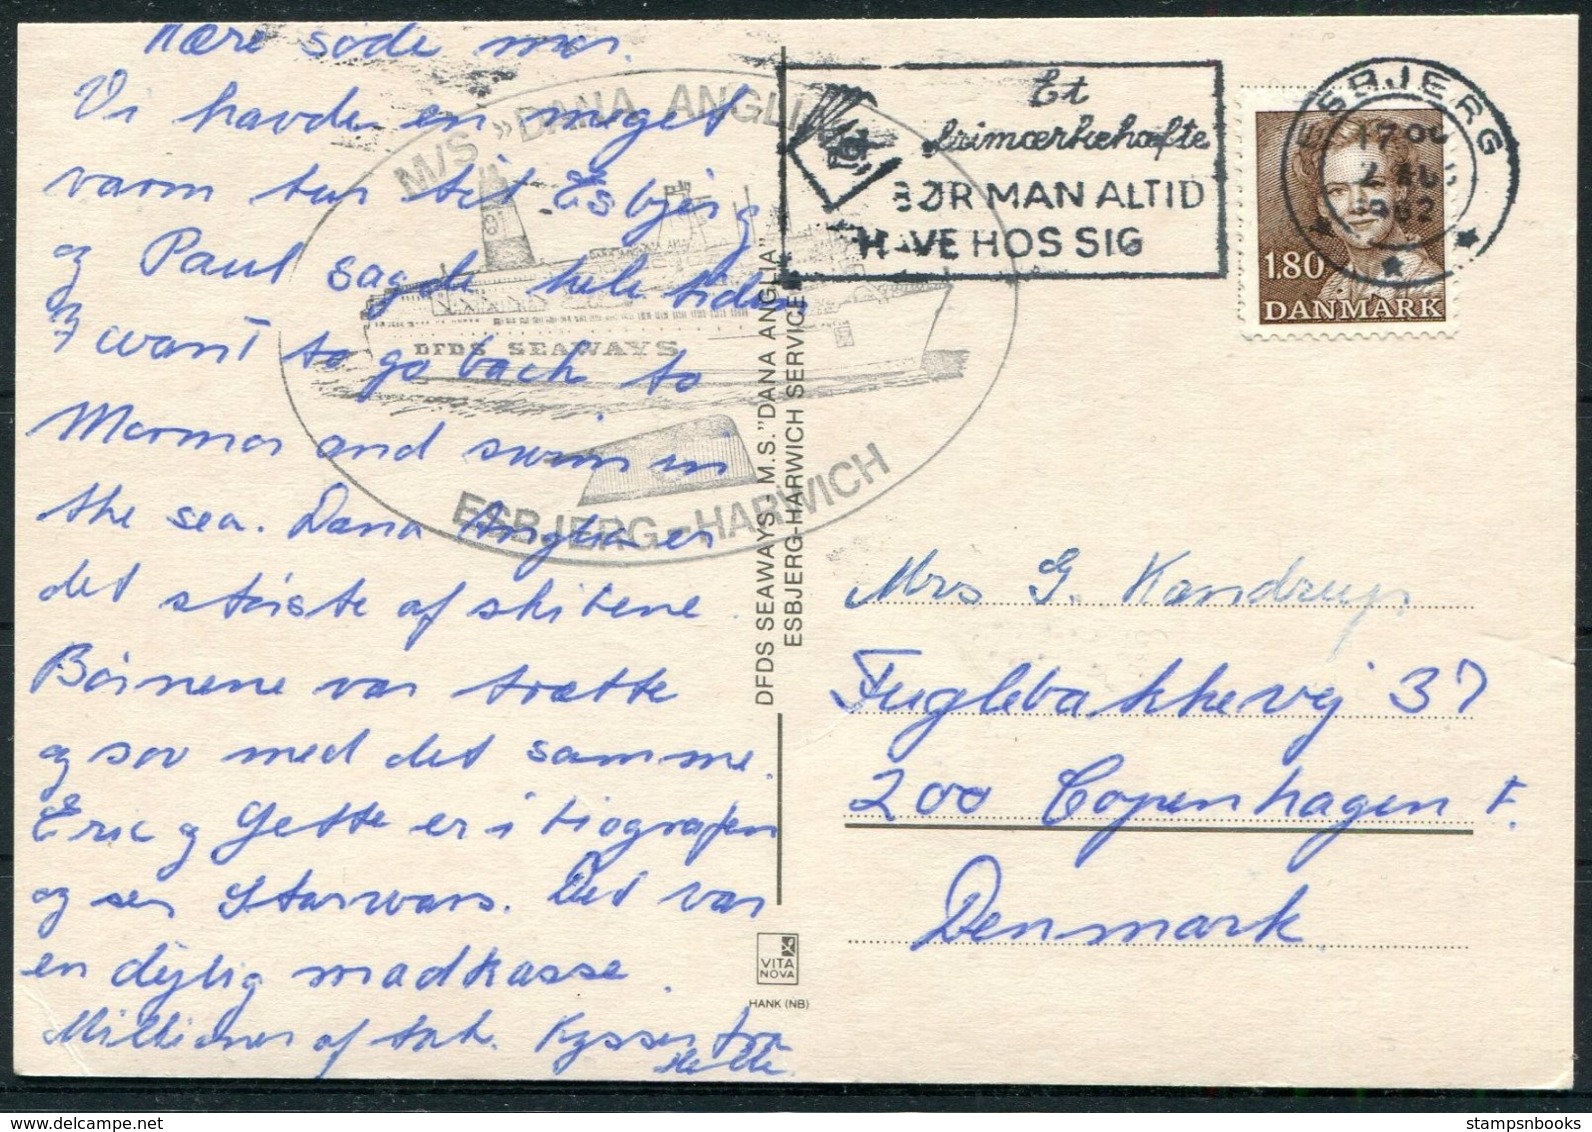 Kære søde mor.
Vi havde en meget
varm tur til Esbjerg
og Paul sagde hele tiden
I want to go back to
Mormor and swim in
the sea. Dana Anglia er
det største af skibene.
Børnene var trætte
og sov med det samme.
Eric og Gette er i biografen
og ser Starwars. Det var
en dejlig madkasse.
Millioner af tak. Kysser fra
Helle
M/S »DANA ANGLIA
DFDS SEAWAYS
ESBJERG-HARWICH
DFDS SEAWAYS - M.S. "DANA ANGLIA"
ESBJERG-HARWICH SERVICE
VITA
NOVA
HANK (NB)
Et
frimærkehæfte
BØR MAN ALTID
HAVE HOS SIG
ESBJERG
17 00
2
1982
1.80
DANMARK
Mrs G. Kondrup
Fuglebakkevej 37
200 Copenhagen F.
Denmark
stampsnbooks
© www.delcampe.net